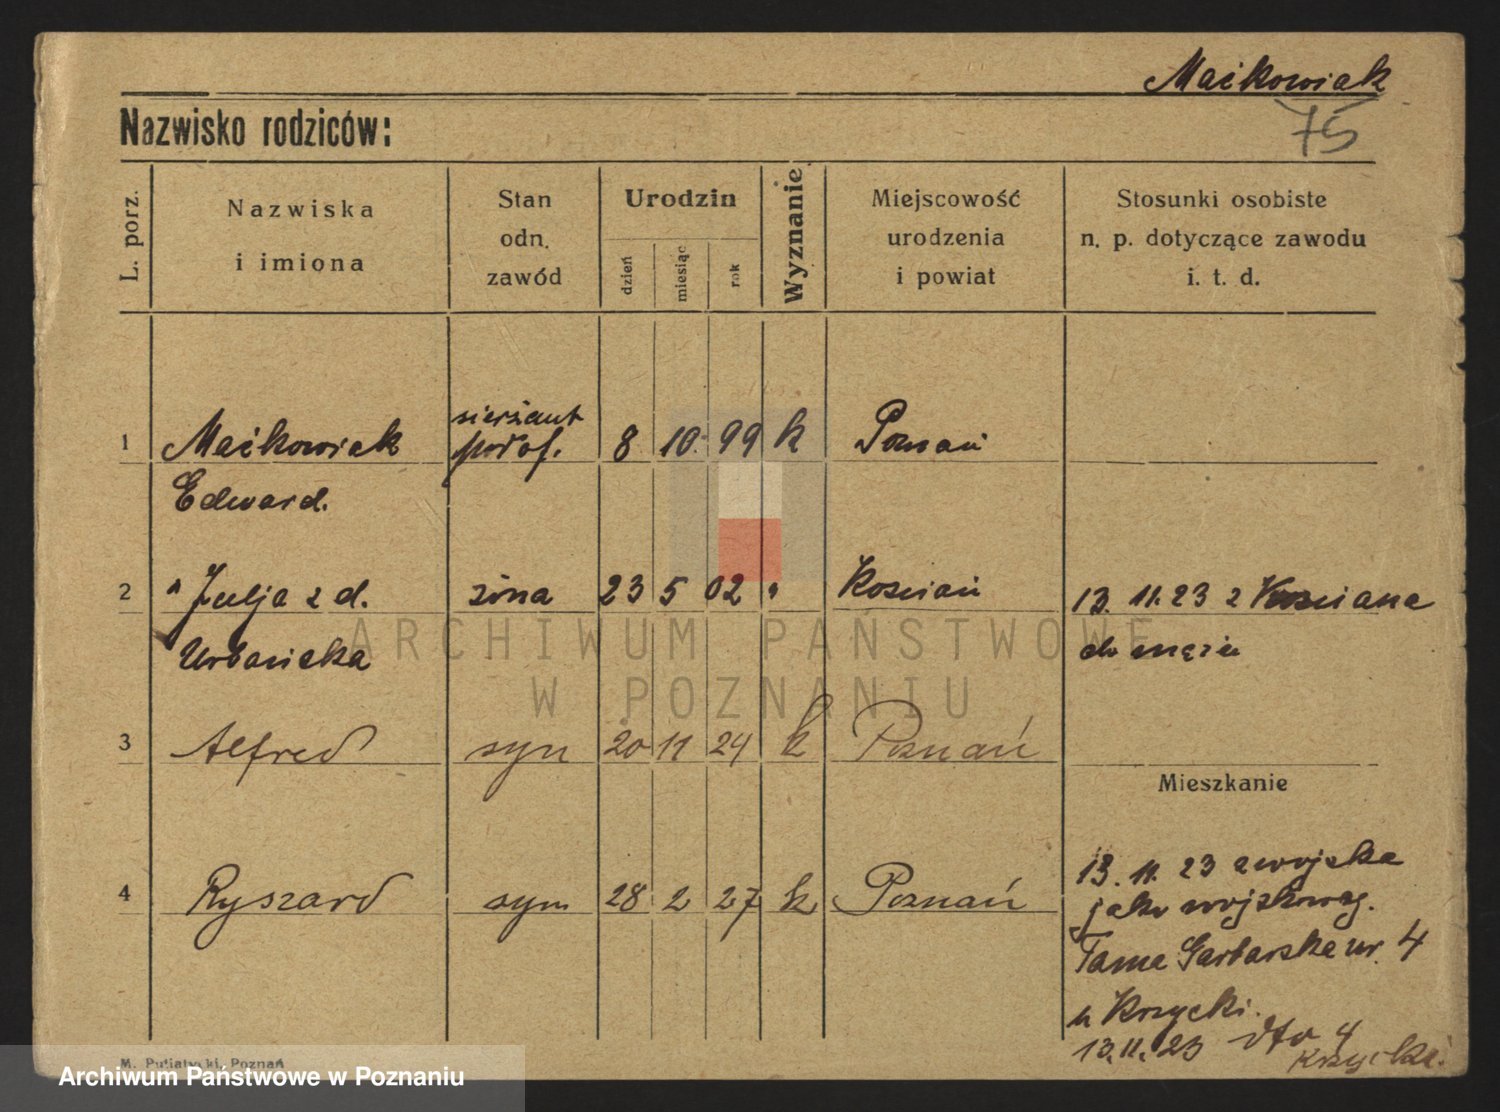 Maćkowiak
75
Nazwisko rodziców:
L. porz.
Nazwiska
i imiona
Stan
odn.
zawód
Urodzin
dzień
miesiąc
rok
Wyznanie
Miejscowość
urodzenia
i powiat
Stosunki osobiste
n. p. dotyczące zawodu
i. t. d.
sierżant
1 Maćkowiak podof. 8 10. 99 k Poznań
Edward.
2 " Julja z d. żona 23 5 02 " Kościan 13. 11. 23 z Kościana
Urbańska do męża
ARCHIWUM PAŃSTWOWE
W POZNANIU
3 Alfred syn 20 11 24 k Poznań
Mieszkanie
13. 11. 23 z wojska
4 Ryszard syn 28 2 27 k Poznań
jako wojskowy.
Tama Garbarska nr. 4
u Krzycki.
13. 11. 23 dto 4
Krzycki.
M. Putiatycki, Poznań
Archiwum Państwowe w Poznaniu